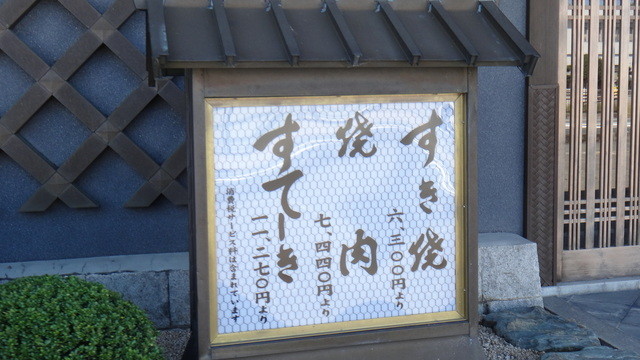 すき焼
六、三〇〇円より
焼肉
七、四四〇円より
すてーき
一一、二七〇円より
消費税サービス料は含まれています